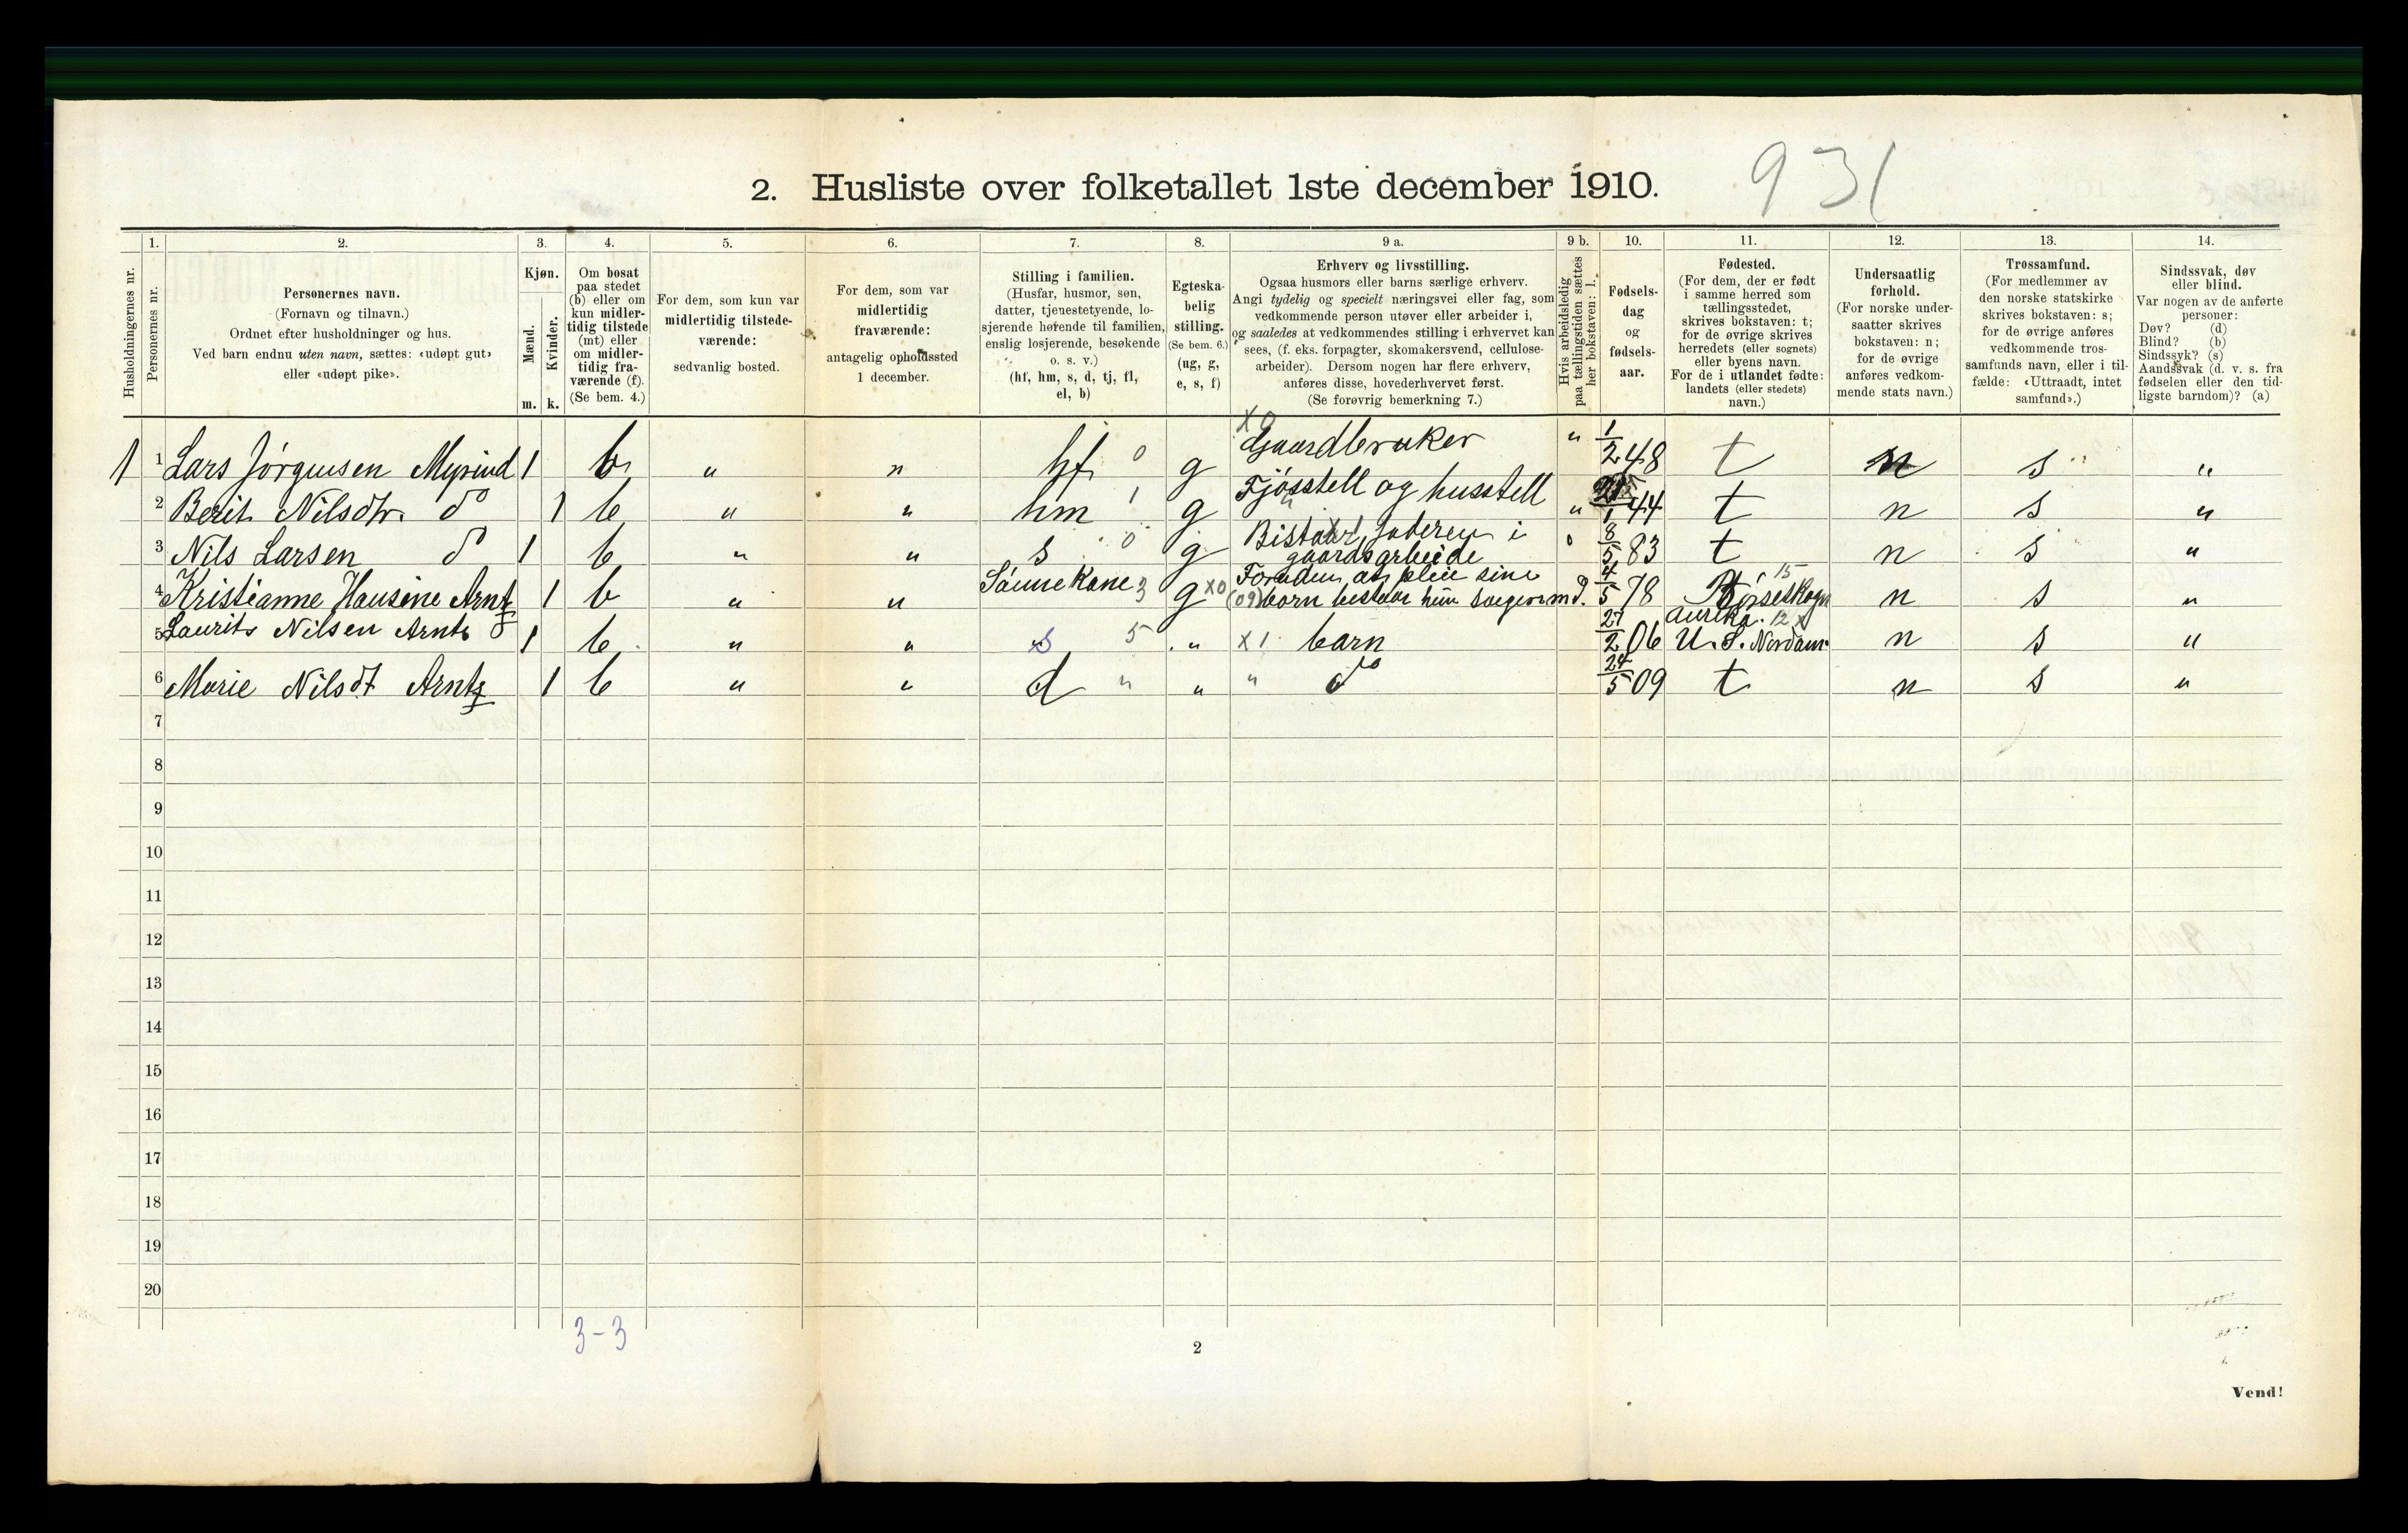 2. Husliste over folketallet 1ste december 1910.
931
Husholdningernes nr.
1.
Personernes nr.
2.
Personernes navn.
(Fornavn og tilnavn.)
Ordnet efter husholdninger og hus.
Ved barn endnu uten navn, sættes: «udøpt gut»
eller «udøpt pike».
3.
Kjøn.
Mænd.
Kvinder.
m. k.
4.
Om bosat
paa stedet
(b) eller om
kun midler-
tidig tilstede
(mt) eller
om midler-
tidig fra-
værende (f).
(Se bem. 4.)
5.
For dem, som kun var
midlertidig tilstede-
værende:
sedvanlig bosted.
6.
For dem, som var
midlertidig
fraværende:
antagelig opholdssted
1 december.
7.
Stilling i familien.
(Husfar, husmor, søn,
datter, tjenestetyende, lo-
sjerende hørende til familien,
enslig losjerende, besøkende
o. s. v.)
(hf, hm, s, d, tj, fl,
el, b)
8.
Egteska-
belig
stilling.
(Se bem. 6.)
(ug, g,
e, s, f)
9 a.
Erhverv og livsstilling.
Ogsaa husmors eller barns særlige erhverv.
Angi tydelig og specielt næringsvei eller fag, som
vedkommende person utøver eller arbeider i,
og saaledes at vedkommendes stilling i erhvervet kan
sees, (f. eks. forpagter, skomakersvend, cellulose-
arbeider). Dersom nogen har flere erhverv,
anføres disse, hovederhvervet først.
(Se forøvrig bemerkning 7.)
9 b.
Hvis arbeidsledig
paa tællingstiden sættes
her bokstaven: l.
10.
Fødsels-
dag
og
fødsels-
aar.
11.
Fødested.
(For dem, der er født
i samme herred som
tællingsstedet,
skrives bokstaven: t;
for de øvrige skrives
herredets (eller sognets)
eller byens navn.
For de i utlandet fødte:
landets (eller stedets)
navn.)
12.
Undersaatlig
forhold.
(For norske under-
saatter skrives
bokstaven: n;
for de øvrige
anføres vedkom-
mende stats navn.)
13.
Trossamfund.
(For medlemmer av
den norske statskirke
skrives bokstaven: s;
for de øvrige anføres
vedkommende tros-
samfunds navn, eller i til-
fælde: «Uttraadt, intet
samfund».)
14.
Sindssvak, døv
eller blind.
Var nogen av de anførte
personer:
Døv? (d)
Blind? (b)
Sindssyk? (s)
Aandssvak (d. v. s. fra
fødselen eller den tid-
ligste barndom)? (a)
1 1 Lars Jørgensen Myrind 1 b " " hf 0 g X0 Gaardbruker " 1/2 48 t n s "
2 Berit Nilsdtr. do 1 b " " hm 1 g Fjøsstell og husstell " 1 44 t n s "
3 Nils Larsen do 1 b " " s 0 g Bistaar faderen i gaardsarbeide 8/5 83 t n s "
4 Kristianne Hansine Arntz 1 b " " Sønnekone 3 g X0 Foruden at pleie sine (09) børn bestaar hun svigermd. 4/5 78 Børseskogn 15 n s "
5 Laurits Nilsen Arntz do 1 b " " s 5 " X1 barn 27/2 06 U. S. Nordam- aurika. 12 n s "
6 Marie Nilsdt Arntz 1 b " " d " " " do 24/5 09 t n s "
7
8
9
10
11
12
13
14
15
16
17
18
19
20
3-3
2
Vend!